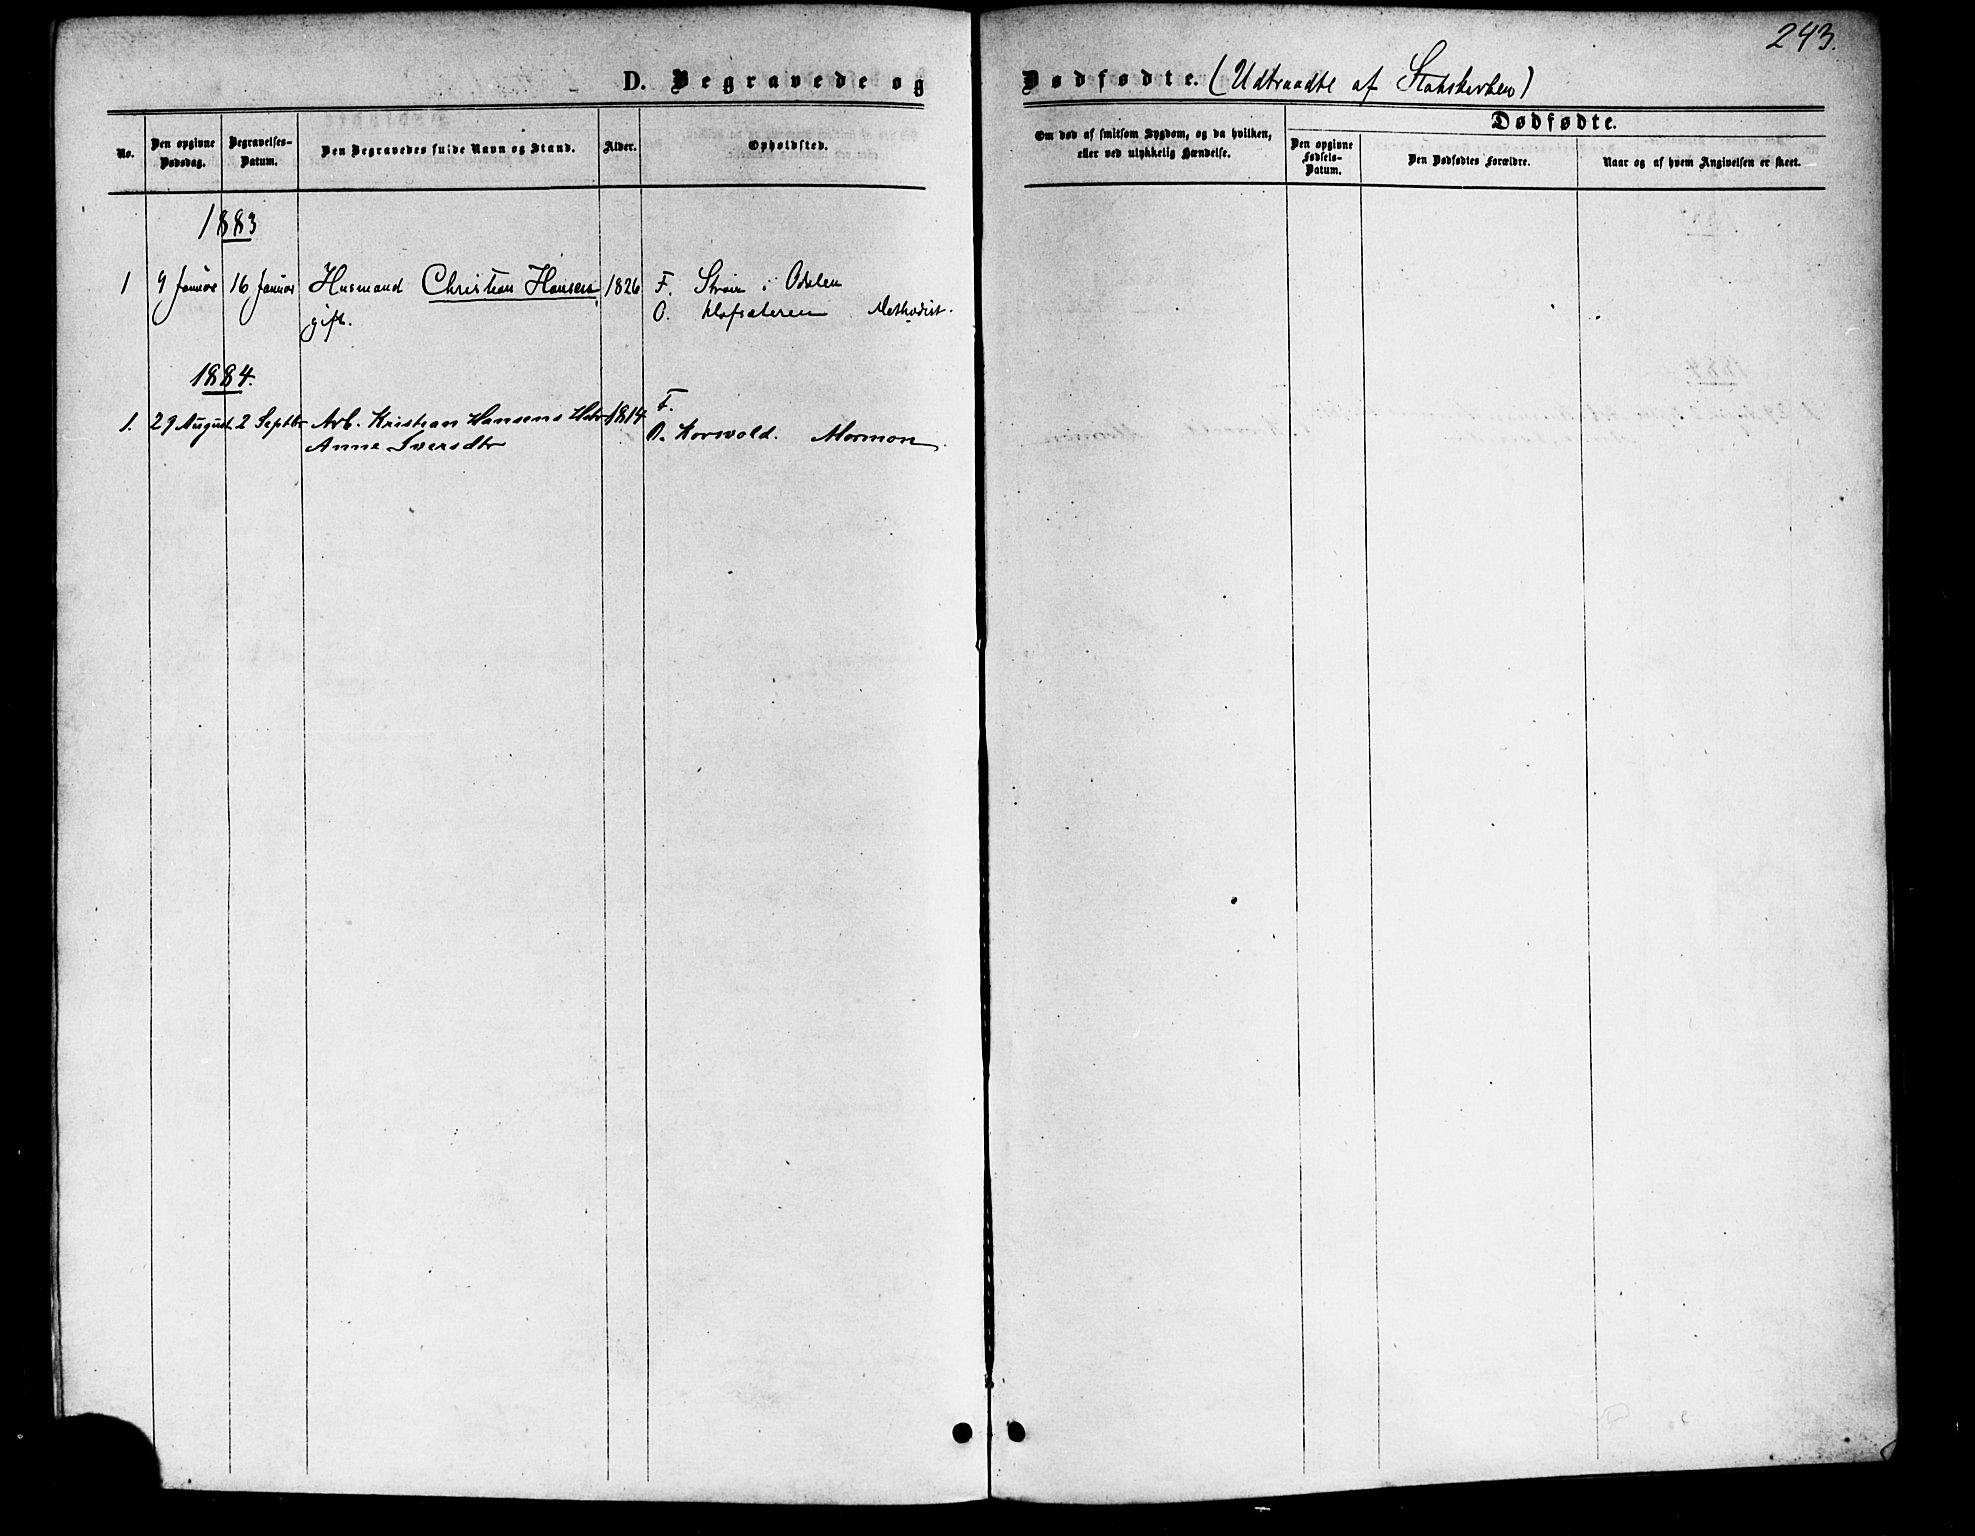 243.
D. Begravede og Dødfødte. (Udtraadte af Statskirken)
No.
Den opgivne Dødsdag.
Begravelses-Datum.
Den Begravedes fulde Navn og Stand.
Alder.
Opholdsted.
Om død af smitsom Sygdom, og da hvilken,
eller ved ulykkelig Hændelse.
Dødfødte.
Den opgivne Fødsels-Datum.
Den Dødfødtes Forældre.
Naar og af hvem Angivelsen er skeet.
1883
1 9 Januar 16 Januar Husmand Christian Hansen 1826 F. i Odalen
gift. O. Methodist.
1884.
F.
1. 29 August 2 Septbr Arb. Kristian Hansens 1814 O. Korvold. Mormon.
Anne Iversdtr